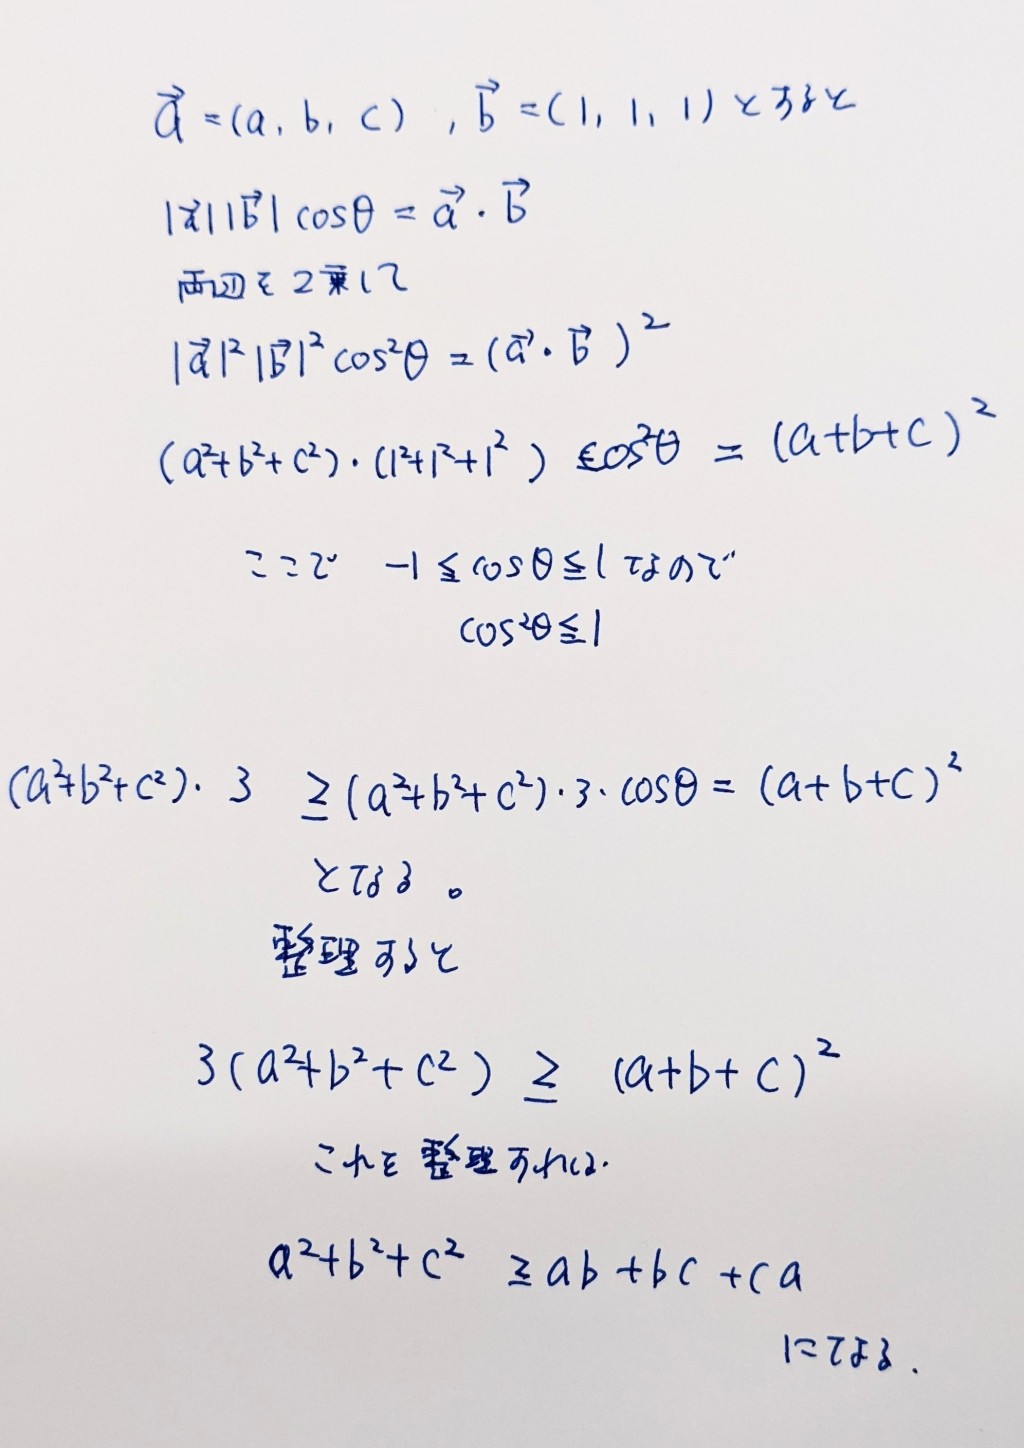 a⃗ = (a, b, c) , b⃗ = (1, 1, 1) とすると
|a⃗||b⃗| cosθ = a⃗・b⃗
両辺を2乗して
|a⃗|²|b⃗|² cos²θ = (a⃗・b⃗)²
(a²+b²+c²)・(1²+1²+1²) cos²θ = (a+b+c)²
ここで -1 ≦ cosθ ≦ 1 なので
cos²θ ≦ 1
(a²+b²+c²)・3 ≧ (a²+b²+c²)・3・cosθ = (a+b+c)²
となる。
整理すると
3(a²+b²+c²) ≧ (a+b+c)²
これを整理すれば
a²+b²+c² ≧ ab+bc+ca
になる.